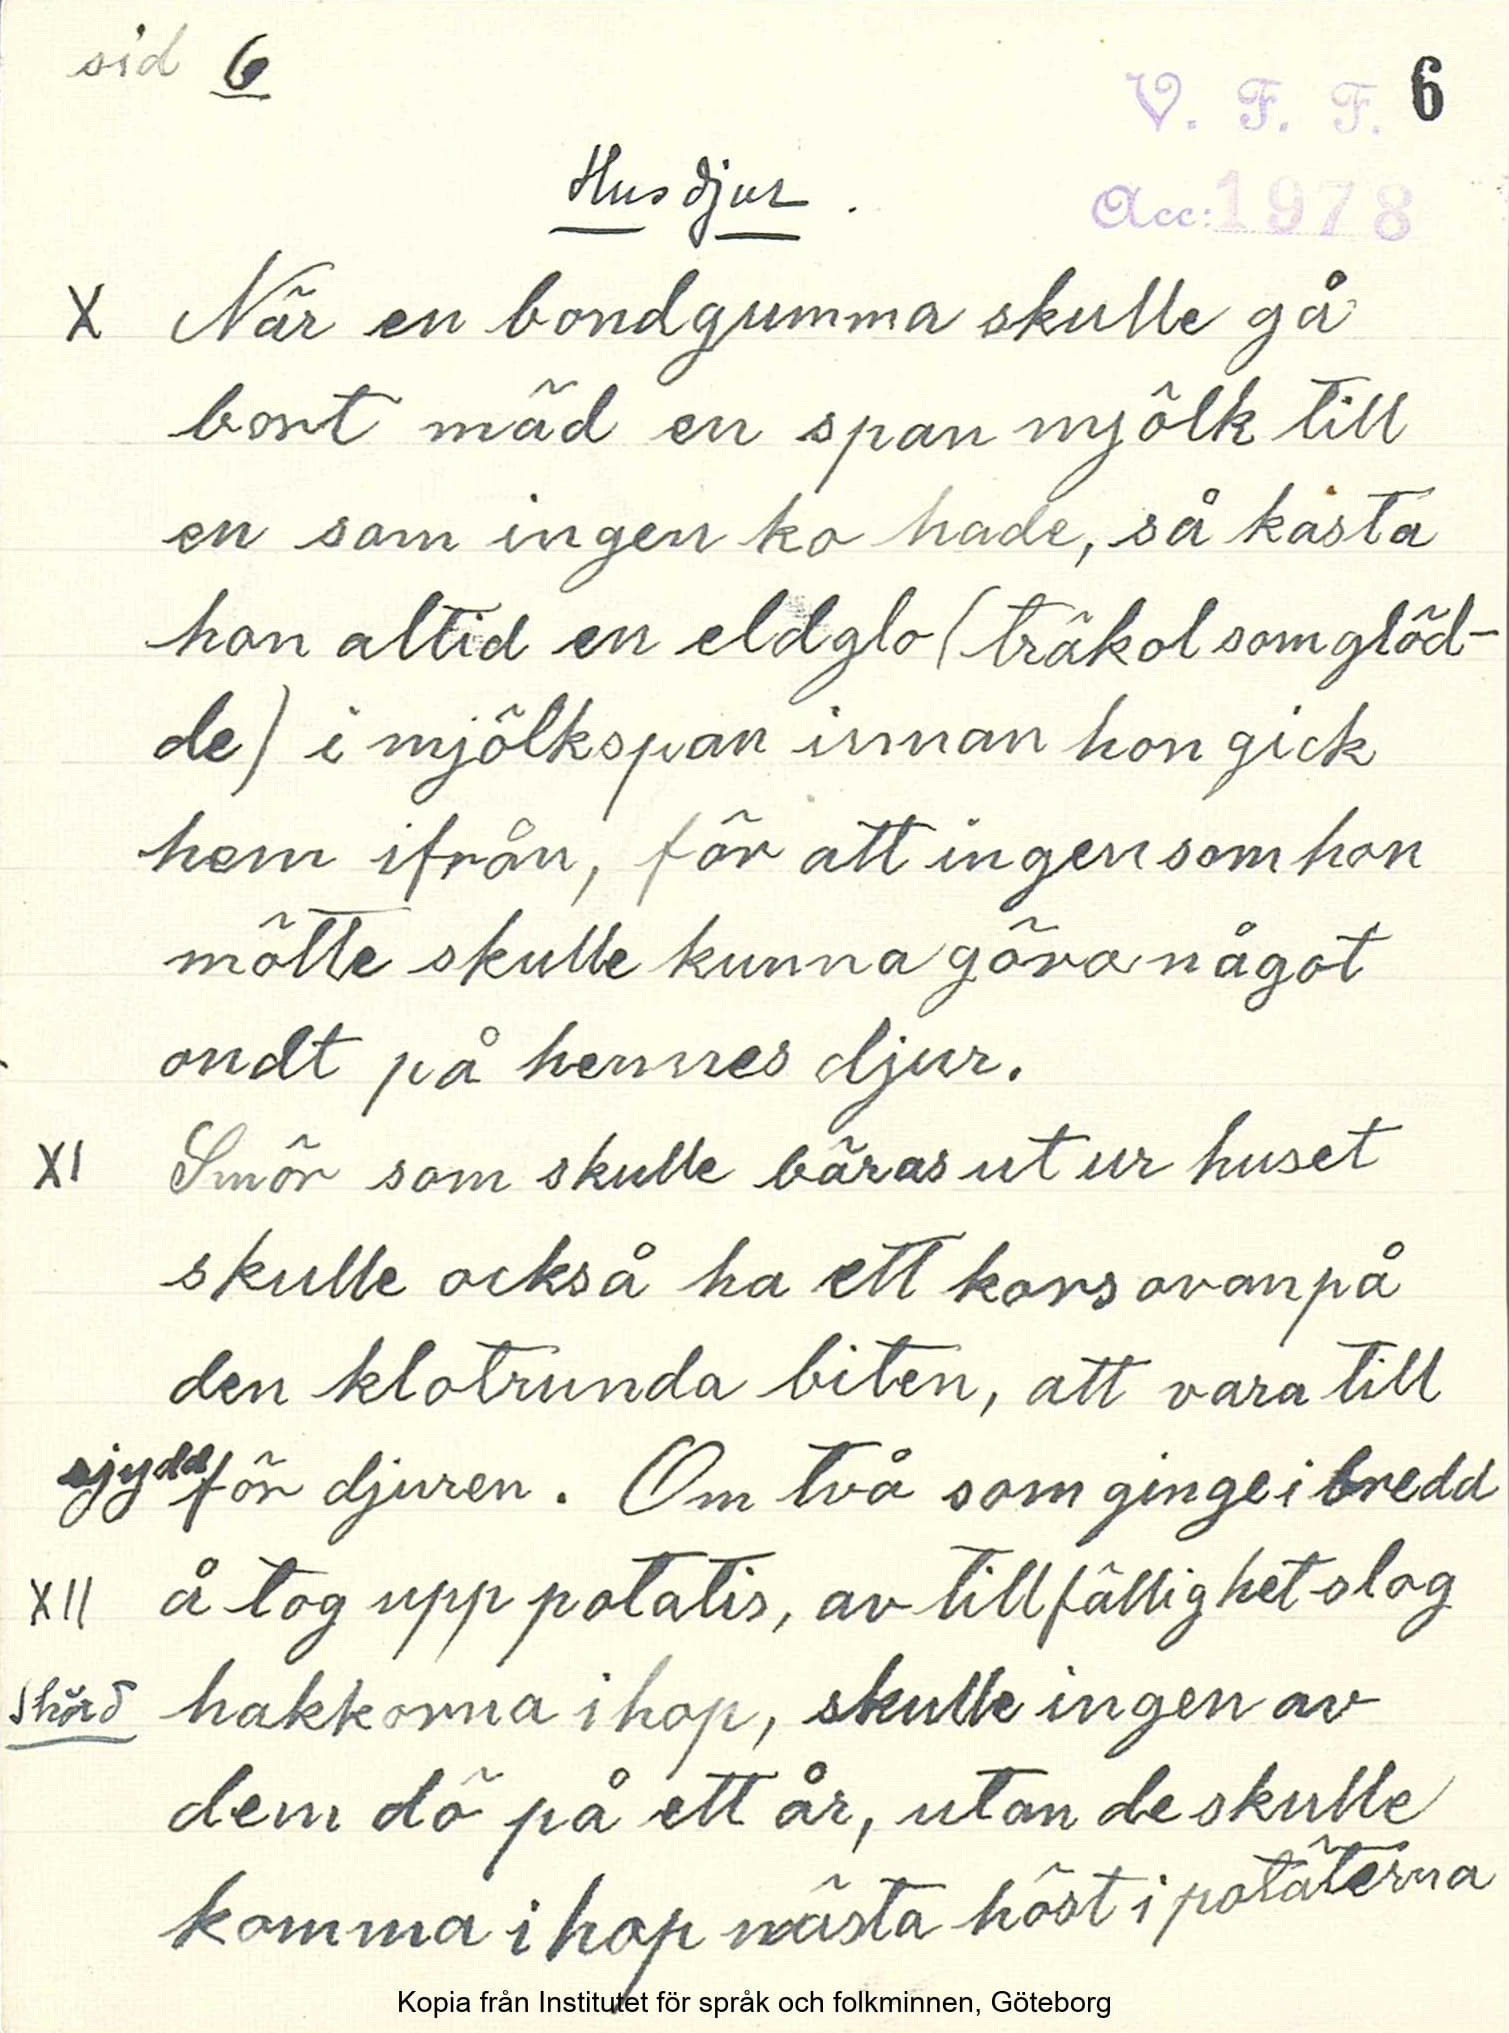 sid 6
V. F. F. 6
Husdjur.
Acc: 1978
X När en bondgumma skulle gå
bort mäd en span mjölk till
en som ingen ko hade, så kasta
hon altid en eldglo (träkol som glöd-
de) i mjölkspan innan hon gick
hem ifrån, för att ingen som hon
mötte skulle kunna göra något
ondt på hennes djur.
XI Smör som skulle bäras ut ur huset
skulle också ha ett kors ovanpå
den klotrunda biten, att vara till
sjydd för djuren. Om två som ginge i bredd
XII å tog upp potatis, av tillfällighet slog
Skörd hakkorna ihop, skulle ingen av
dem dö på ett år, utan de skulle
komma ihop nästa höst i potäterna
Kopia från Institutet för språk och folkminnen, Göteborg